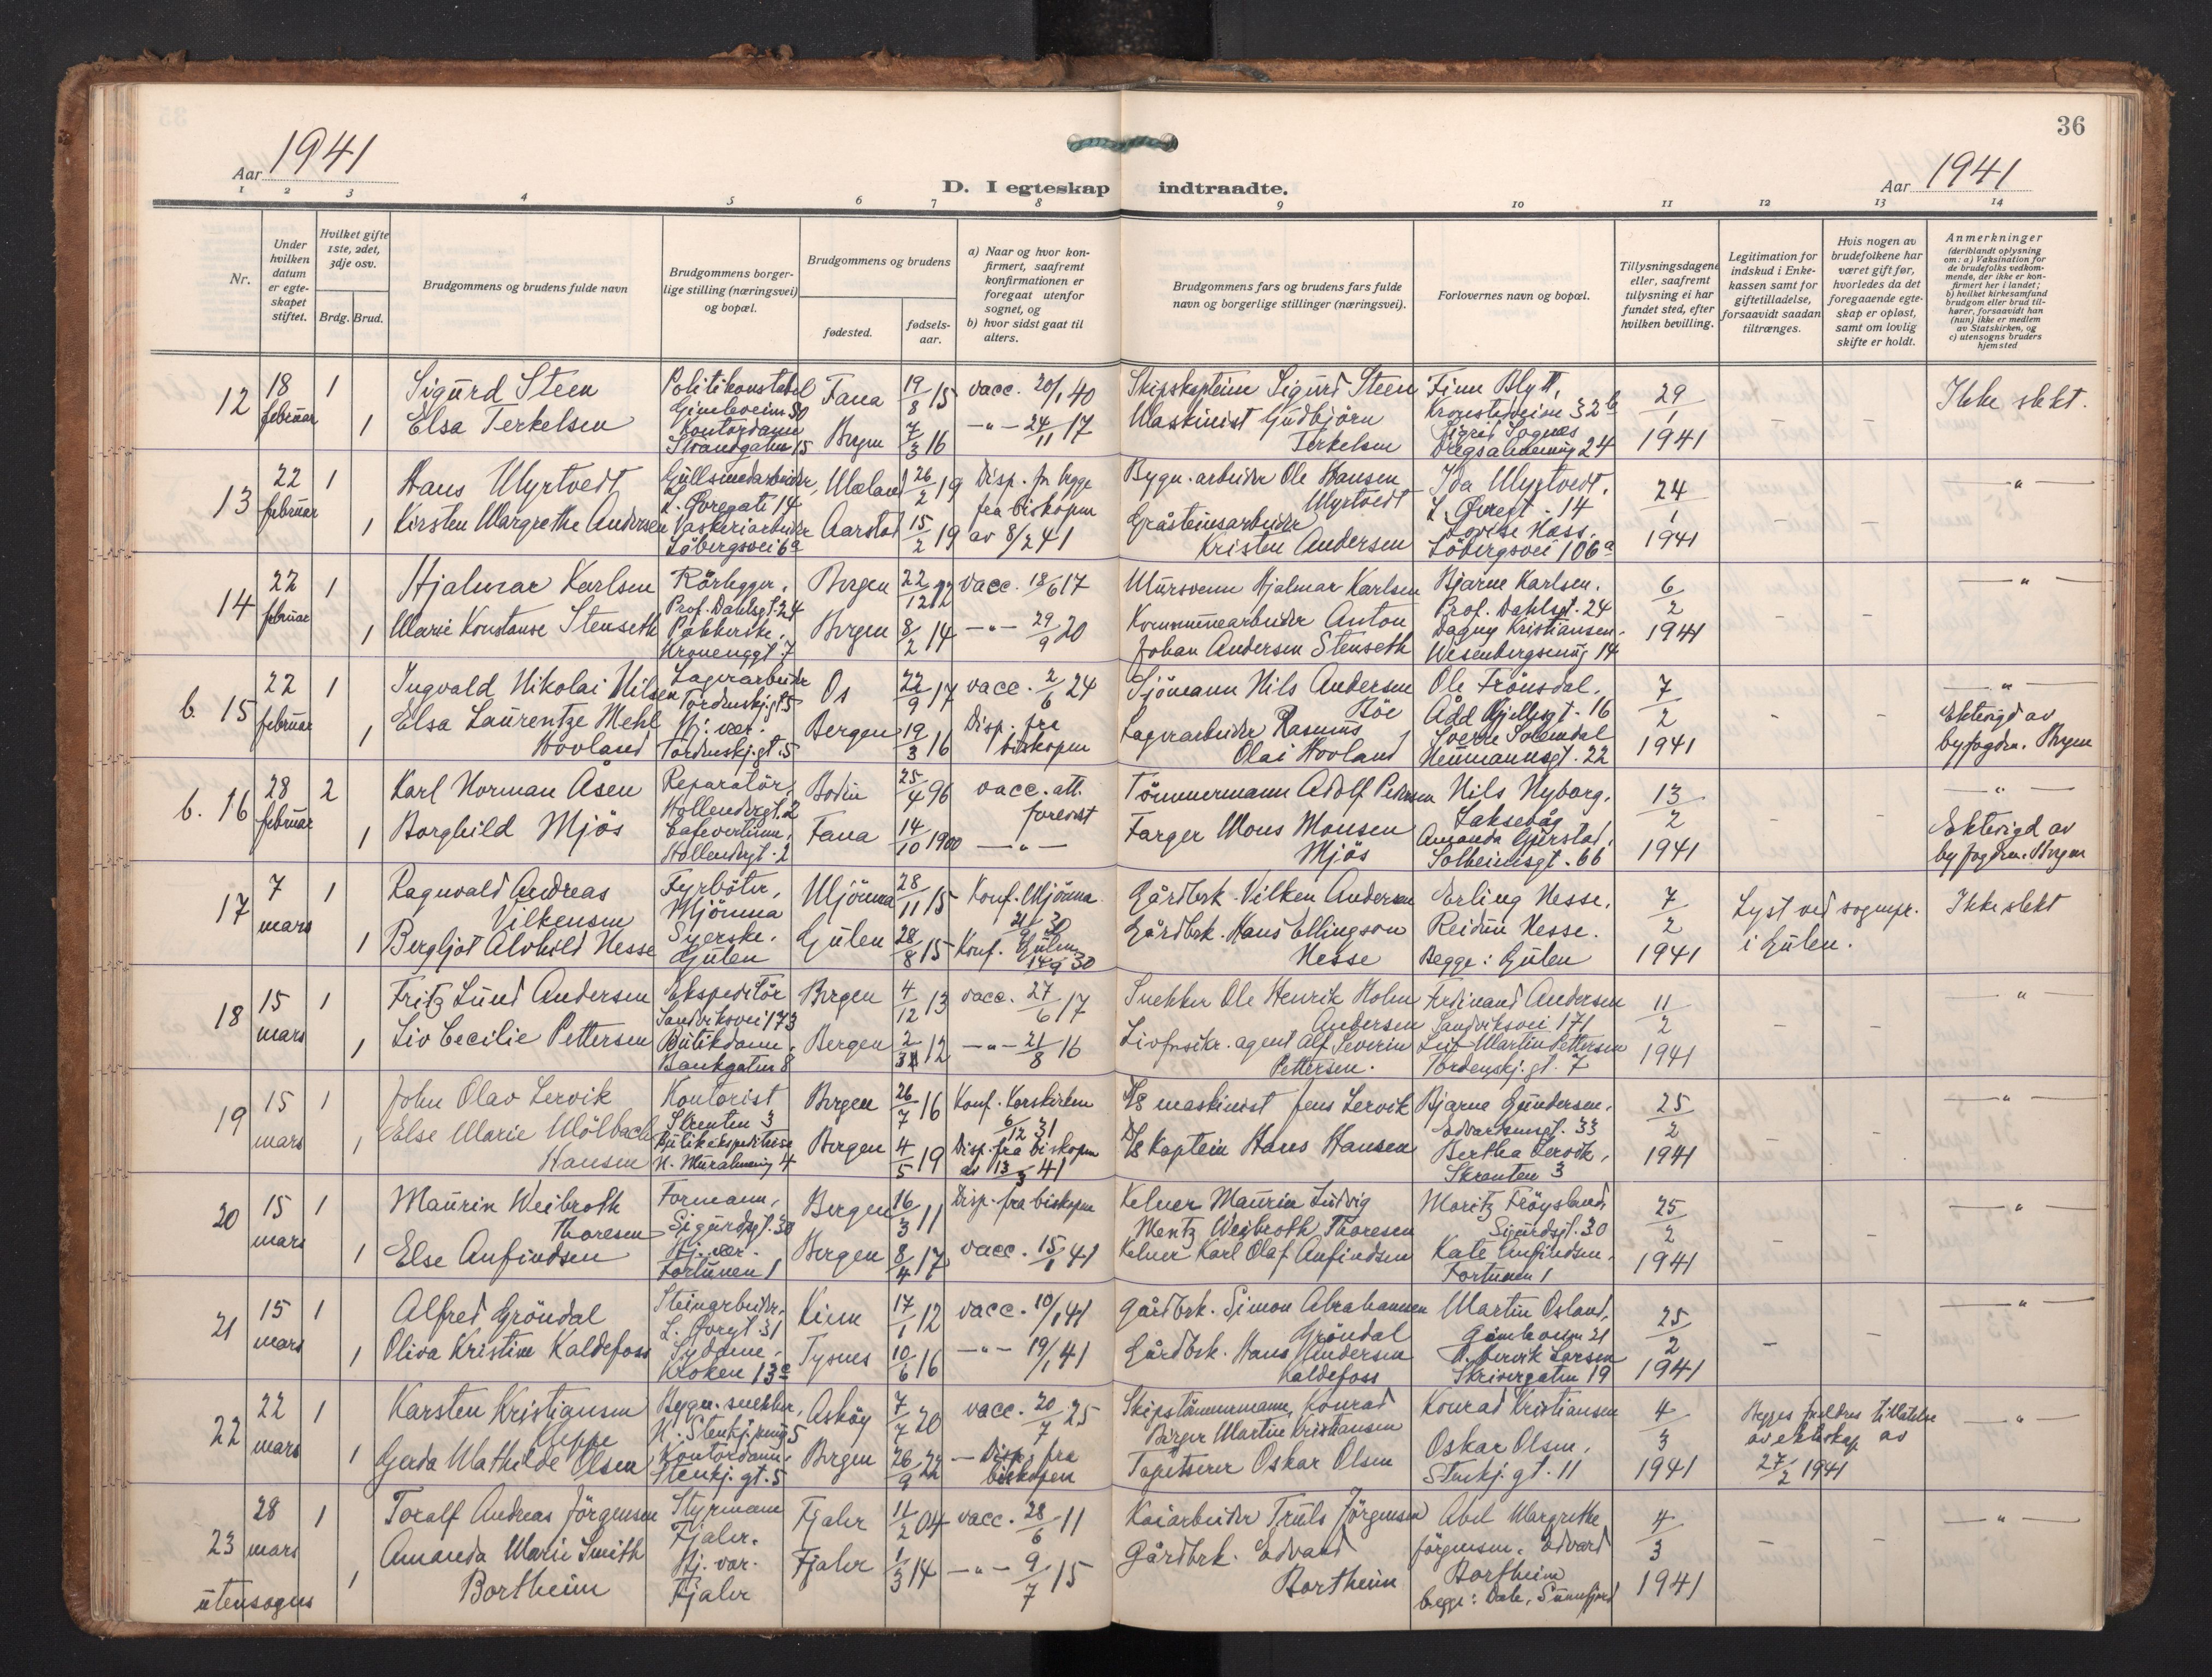 36
Aar 1941
D. I egteskap indtraadte.
Aar 1941
1 2 3 4 5 6 7 8 9 10 11 12 13 14
Nr.
Under hvilken datum er egteskapet stiftet.
Hvilket gifte 1ste, 2det, 3dje osv.
Brdg. Brud.
Brudgommens og brudens fulde navn
Brudgommens borgerlige stilling (næringsvei) og bopæl.
Brudgommens og brudens
fødested.
fødselsaar.
a) Naar og hvor konfirmert, saafremt konfirmationen er foregaat utenfor sognet, og
b) hvor sidst gaat til alters.
Brudgommens fars og brudens fars fulde navn og borgerlige stillinger (næringsvei).
Forlovernes navn og bopæl.
Tillysningsdagene eller, saafremt tillysning ei har fundet sted, efter hvilken bevilling.
Legitimation for indskud i Enkekassen samt for giftetilladelse, forsaavidt saadan tiltrænges.
Hvis nogen av brudefolkene har været gift før, hvorledes da det foregaaende egteskap er opløst, samt om lovlig skifte er holdt.
Anmerkninger
(deriblandt oplysning om: a) Vaksination for de brudefolks vedkommende, der ikke er konfirmert her i landet; b) hvilket kirkesamfund brudgom eller brud tilhører, forsaavidt han (hun) ikke er medlem av Statskirken, og c) utensogns bruders hjemsted
12 18 februar 1 Sigurd Steen Politikonstabel Gimleveien 30 Fana 19/8 15 vacc. 20/1 40 Skipskaptein Sigurd Steen Finn Blytt, Kronstadveien 32b 29/1 1941 Ikke slekt.
1 Elsa Terkelsen Kontordame Strandgaten 15 Bergen 7/3 16 -"- 24/11 17 Maskinist Gudbjörn Terkelsen Sigrid Sognæs Dregsalmenning 24
13 22 februar 1 Hans Myrtvedt Gullsmedarbeider, L. Øvregate 14 Mæland 26/2 19 Disp. for begge fra biskopen av 8/2 41 Bygn.arbeider Ole Hansen Myrtvedt Ida Myrtvedt. L. Øvregt. 14 24/1 1941 — " —
1 Kirsten Margrethe Andersen Vaskeriarbeider Löbergsvei 6a Aarstad 15/2 19 Gråsteinsarbeider Kristen Andersen Lovise Hass. Löbergsvei 106a
14 22 februar 1 Hjalmar Karlsen Rörlegger, Prof. Dahlsgt. 24 Bergen 22/12 12 vacc. 18/6 17 Mursvenn Hjalmar Karlsen Bjarne Karlsen. Prof. Dahlsgt. 24 6/2 1941 — " —
1 Marie Konstanse Stenseth Pakkerske. Kronenggt. 7 Bergen 8/2 14 -"- 29/9 20 Kommunearbeider Anton Johan Andersen Stenseth Dagny Kristiansen. Wesenbergsmug 14
b. 15 22 februar 1 Ingvald Nikolai Nilsen Lagerarbeider Tordenskj.gt 5 Os 22/9 17 vacc. 2/6 24 Sjömann Nils Andersen Böe Ole Frönsdal, Add Gjellesgt. 16 7/2 1941 — " — Ektevigd av byfogden. Bergen
1 Elsa Laurentze Mehl Hovland Hj. vær. Tordenskj.gt. 5 Bergen 19/3 16 Disp. fra biskopen Lagerarbeider Rasmus Olai Hovland Sverre Solendal Neumannsgt. 22
b. 16 28 februar 2 Karl Norman Åsen Reparatör, Hollendergt. 2 Bodin 25/4 96 vacc. att. forevist Tömmermann Adolf Petersen Nils Nyborg, Laksevåg 13/2 1941 — " — Ektevigd av byfogden. Bergen
1 Borghild Mjös Cafevertinne, Hollendergt. 2 Fana 14/10 1900 — " — Farger Mons Monsen Mjös Amanda Gjerstad, Solheimsgt. 66
17 7 mars 1 Ragnvald Andreas Vilkensen Fyrböter, Mjömna Mjömna 28/11 15 Konf. Mjömna 21/9 30 Gårdbrk. Vilken Andersen Erling Nesse, 7/2 1941 Lyst ved sognepr. i Gulen. Ikke slekt
1 Bergljot Alvhild Nesse Syerske. Gulen Gulen 28/8 15 Konf. Gulen 14/9 30 Gårdbrk. Hans Ellingson Nesse Reidun Nesse. Begge: Gulen
18 15 mars 1 Fritz Lund Andersen Ekspeditör Sandviksvei 173 Bergen 4/12 13 vacc. 27/6 17 Snekker Ole Henrik Holm Andersen Ferdinand Andersen Sandviksvei 171 11/2 1941 "
1 Liv Cecilie Pettersen Butikdame, Bankgaten 8 Bergen 2/3 12 -"- 21/8 16 Livforsikr. agent Alf Severin Pettersen. Leif Martin Pettersen Tordenskj. gt. 7
19 15 mars 1 John Olav Lervik Kontorist Skrenten 3 Bergen 26/7 16 Konf. Korskirken 6/12 31 D/S maskinist Jens Lervik Bjarne Gundersen, Edvardsensgt. 33 25/2 1941 — " —
1 Else Marie Mölbach Hansen Butikekspeditrise N. Muralmening 4 Bergen 4/5 19 Disp. fra biskopen av 13/3 41 D/S Kaptein Hans Hansen Bertha Lervik, Skrenten 3
20 15 mars 1 Maurin Weibroth Thoresen Formann, Sigurdsgt. 30 Bergen 16/3 11 Disp. fra biskopen Kelner Maurin Ludvig Mentz Weibroth Thoresen Moritz Fröysland, Sigurdsgt. 30 25/2 1941 "
1 Else Anfindsen Hj. vær. Fortunen 1 Bergen 8/4 17 vacc. 15/1 41 Kelner Karl Olaf Anfindsen Kate Anfindsen. Fortunen 1
21 15 mars 1 Alfred Gröndal Steinarbeider, L. Øvregt. 31 Kinn 17/1 12 vacc. 10/1 41 Gårdbrk. Simon Abrahamsen Gröndal Martin Osland, Gimleveien 21 25/2 1941 — " —
1 Oliva Kristine Kaldefoss Sydame, Kroken 13c Tysnes 10/6 16 -"- 19/1 41 Gårdbrk. Hans Andersen Kaldefoss Lervik Larsen Skrivergaten 19
22 22 mars 1 Karsten Kristiansen Kleppe Bygn. snekker, N. Stenkj. smug 5 Asköy 7/7 20 vacc. 20/7 25 Skipstömmermann Konrad Birger Martin Kristiansen Konrad Kristiansen 4/3 1941 Begges foreldres tillatelse av ekteskap av 27/2 1941 — " —
1 Gerda Mathilde Olsen Kontordame. Stenkj. gt. 5 Bergen 26/9 22 — Disp. fra biskopen Tapetserer Oskar Olsen Oskar Olsen, Stenkj. gt. 11
23 28 mars 1 Toralf Andreas Jörgensen Styrmann Fjaler. Fjaler 11/2 04 vacc. 28/6 11 Kaiarbeider Truls Jörgensen Abel Margrethe Jörgensen. 4/3 1941 — " —
utensogns 1 Amanda Marie Smith Bortheim Hj. vær. Fjaler Fjaler 1/3 14 -"- 9/7 15 Gårdbrk. Edvard Bortheim Edvard Bortheim begge: Dale, Sunnfjord